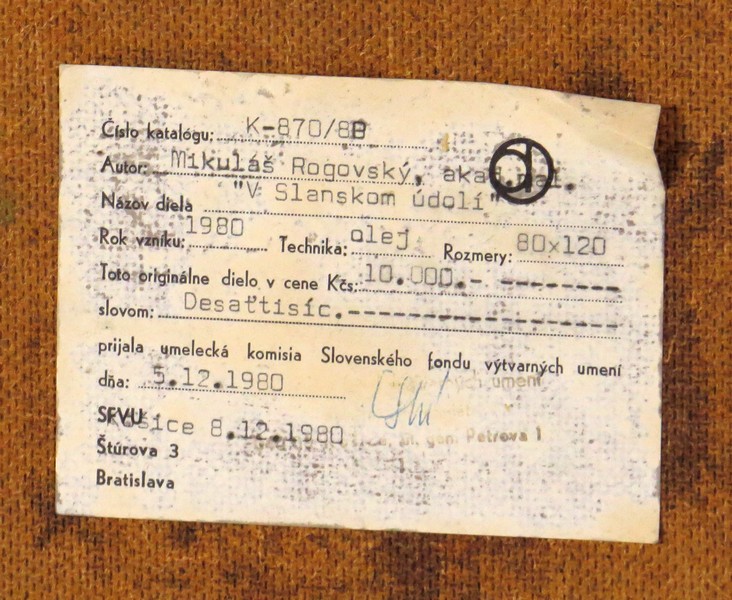 Číslo katalógu: K-870/8B
Autor: Mikuláš Rogovský, akad.mal.
Názov diela "V Slanskom údolí"
Rok vzniku: 1980 Technika: olej Rozmery: 80x120
Toto originálne dielo v cene Kčs: 10.000.- --------
slovom: Desaťtisíc.------------------
prijala umelecká komisia Slovenského fondu výtvarných umení
dňa: 5.12.1980
umení
SFVU Košice 8.12.1980 gen. Petrova 1
Štúrova 3
Bratislava